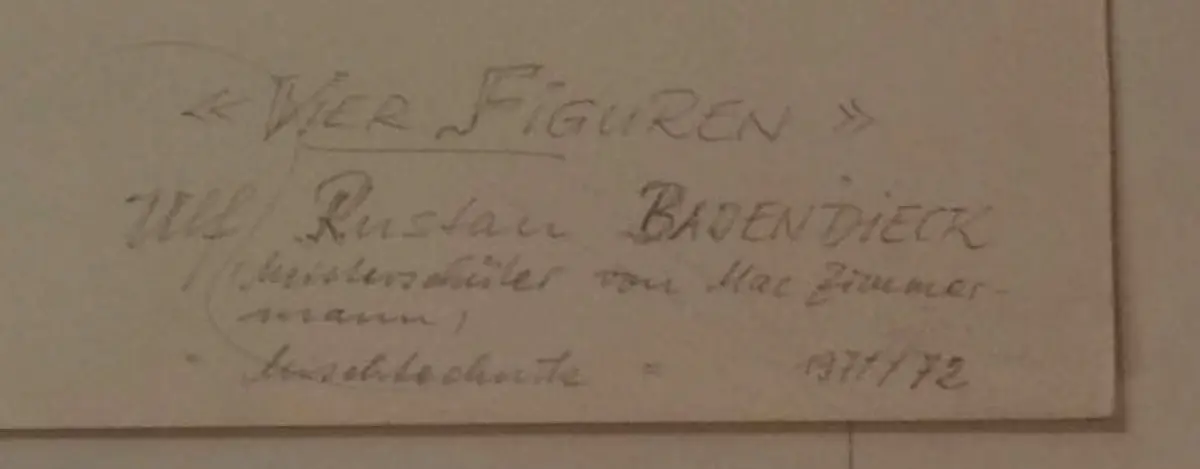 « VIER FIGUREN »
Ulf Rustan BADENDIECK
Meisterschüler von Mac Zimmer-
mann,
" Mischtechnik " 1971/72